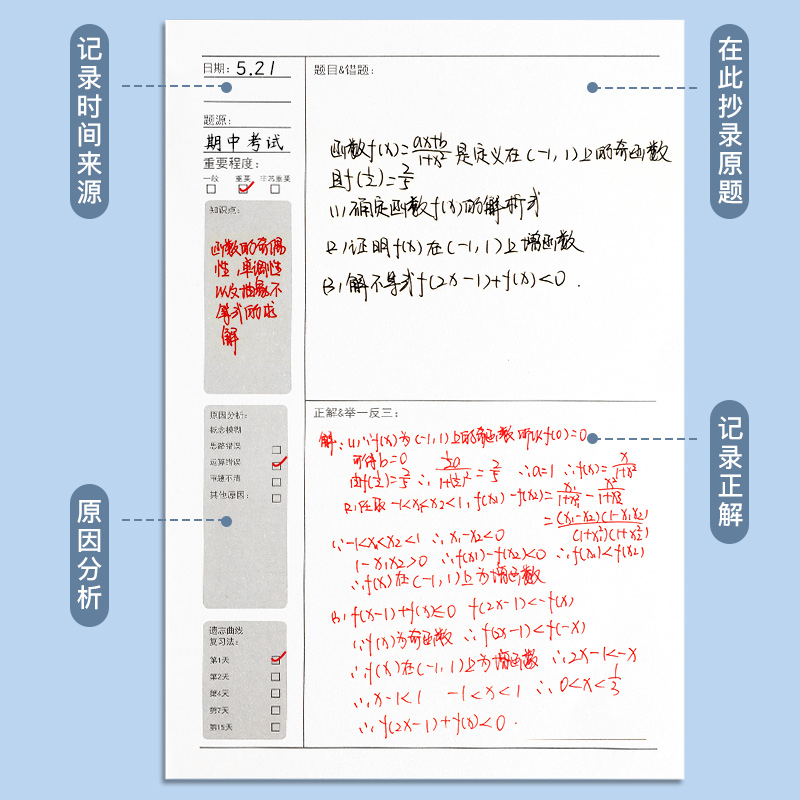 记录时间来源
在此抄录原题
原因分析
记录正解
日期: 5.21
题源:
期中考试
重要程度:
一般 重要 非常重要
知识点:
函数的奇偶
性,单调性
以及抽象不
等式的求
解
原因分析:
概念模糊
思路错误
运算错误
审题不清
其他原因:
遗忘曲线
复习法:
第1天
第2天
第4天
第7天
第15天
题目&错题:
函数f(x)=(ax+b)/(1+x²)是定义在(-1,1)上的奇函数
且f(1/2)=2/5
(1)确定函数f(x)的解析式
(2)证明f(x)在(-1,1)上增函数
(3)解不等式f(2x-1)+f(x)<0.
正解&举一反三:
解:(1)∵f(x)为(-1,1)上的奇函数 所以f(0)=0
可得b=0
∴a=1 ∴f(x)=x/(1+x²)
(2)任取-1<x₁<x₂<1,f(x₁)-f(x₂)=x₁/(1+x₁²)-x₂/(1+x₂²)
=(x₁-x₂)(1-x₁x₂)/(1+x₁²)(1+x₂²)
∵-1<x₁<x₂<1 ∴x₁-x₂<0
1-x₁x₂>0 ∴f(x₁)-f(x₂)<0 ∴f(x₁)<f(x₂)
∴f(x)在(-1,1)上为增函数
f(2x-1)<-f(x)
∵f(x)为奇函数 ∴f(2x-1)<f(-x)
∵f(x)在(-1,1)上为增函数 ∴2x-1<-x
-1<x<1 ∴0<x<1/3
∴f(2x-1)+f(x)<0.